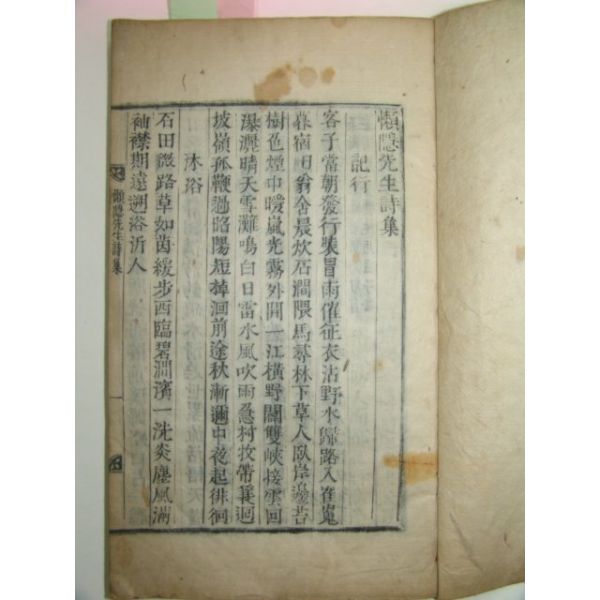 懶隱先生詩集
記行
客子當朝發行裝冒雨催征衣沾野水歸路入崔嵬
暮宿田翁舍晨炊石澗隈馬尋林下草人臥岸邊苔
樹色煙中曖嵐光霧外開一江橫野闊雙峽接雲回
瀑灑晴天雪灘鳴白日雷水風吹雨急村牧帶蓑迴
坡嶺孤鞭過昭陽短棹洄前途秋漸邇中夜起徘徊
沐浴
石田微路草如茵緩步西臨碧澗濱一洗炎塵風滿
袖襟期遠遡浴沂人
懶隱先生詩集 一